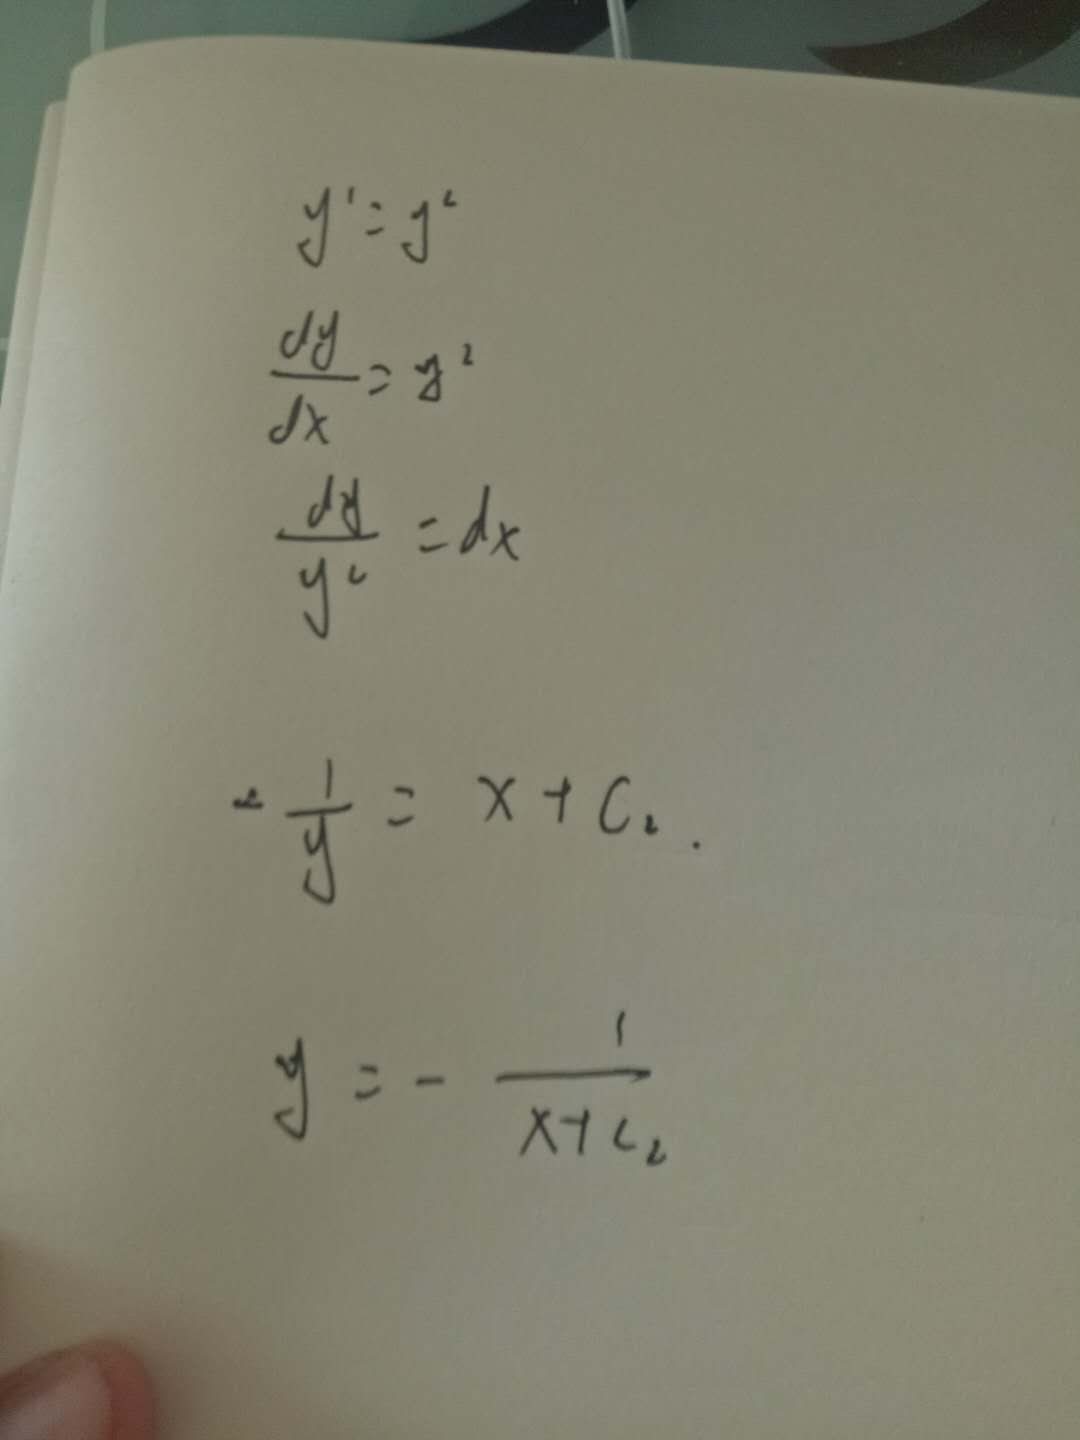 y' = y²
dy/dx = y²
dy/y² = dx
- 1/y = x + C₂.
y = - 1/(x+C₂)